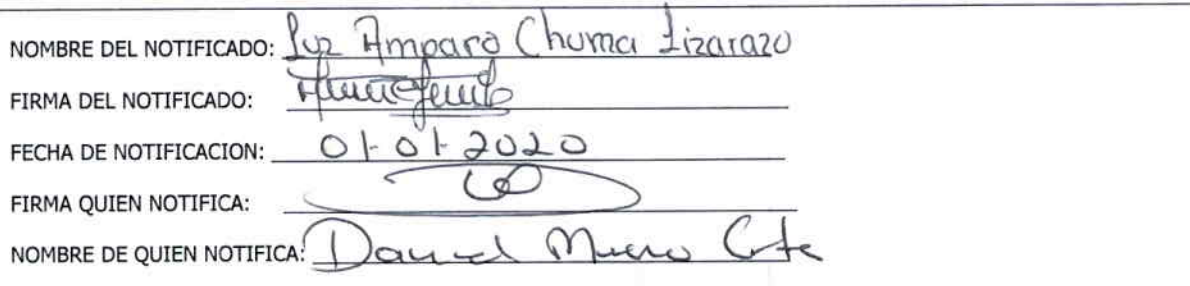 NOMBRE DEL NOTIFICADO: Luz Amparo Chuma Lizarazo
FIRMA DEL NOTIFICADO:
FECHA DE NOTIFICACION: 01-01-2020
FIRMA QUIEN NOTIFICA:
NOMBRE DE QUIEN NOTIFICA: Daniel